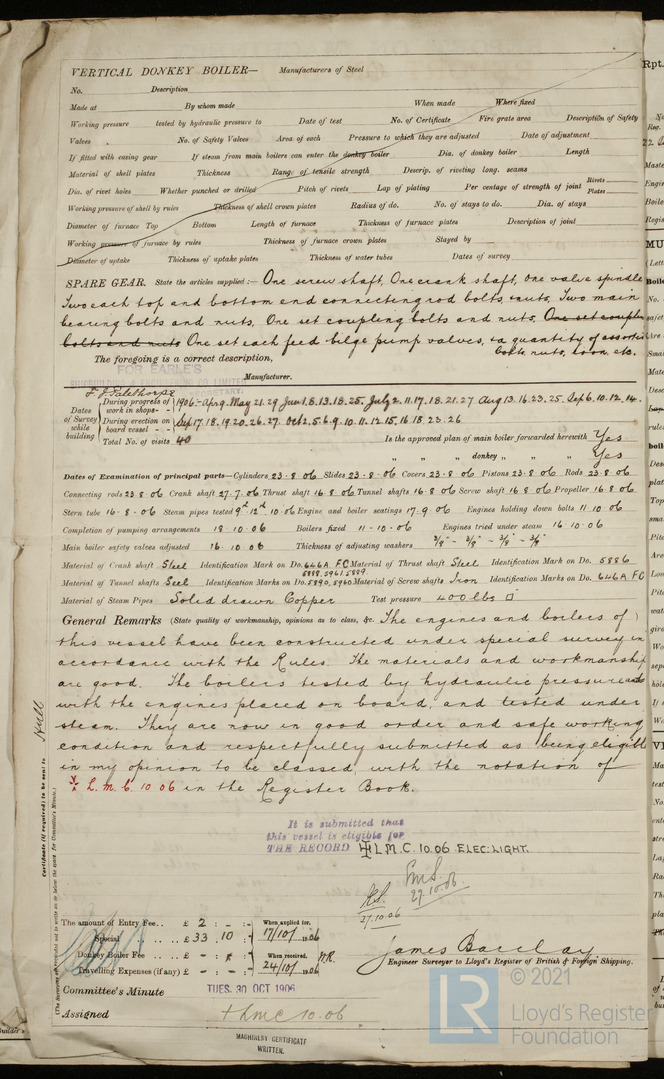 VERTICAL DONKEY BOILER— Manufacturers of Steel
No. Description
Made at By whom made When made Where fixed
Working pressure tested by hydraulic pressure to Date of test No. of Certificate Fire grate area Description of Safety
Valves No. of Safety Valves Area of each Pressure to which they are adjusted Date of adjustment
If fitted with easing gear If steam from main boilers can enter the donkey boiler Dia. of donkey boiler Length
Material of shell plates Thickness Range of tensile strength Descrip. of riveting long. seams
Dia. of rivet holes Whether punched or drilled Pitch of rivets Lap of plating Per centage of strength of joint Rivets Plates
Working pressure of shell by rules Thickness of shell crown plates Radius of do. No. of stays to do. Dia. of stays
Diameter of furnace Top Bottom Length of furnace Thickness of furnace plates Description of joint
Working pressure of furnace by rules Thickness of furnace crown plates Stayed by
Diameter of uptake Thickness of uptake plates Thickness of water tubes Dates of survey
SPARE GEAR. State the articles supplied:— One screw shaft, One crank shaft, one valve spindle
Two each top and bottom end connecting rod bolts & nuts, Two main
bearing bolts and nuts, One set coupling bolts and nuts, One set couplin
bolts and nuts One set each feed bilge pump valves, & a quantity of assorted
bolts, nuts, iron etc.
The foregoing is a correct description,
FOR EARLE'S
Manufacturer.
Dates of Survey while building
During progress of work in shops- - 1906:- Apr 9. May 21. 29 Jun 1. 8. 13. 18. 25. July 2. 11. 17. 18. 21. 27 Aug 13. 16. 23. 25. Sep 6. 10. 12. 14.
During erection on board vessel - - Sep 17. 18. 19. 20. 26. 27. Oct 2. 5. 6. 9. 10. 11. 12. 15. 16. 18. 23. 26
Total No. of visits 40 Is the approved plan of main boiler forwarded herewith Yes
" " donkey " " Yes
Dates of Examination of principal parts—Cylinders 23-8-06 Slides 23-8-06 Covers 23-8-06 Pistons 23-8-06 Rods 23-8-06
Connecting rods 23-8-06 Crank shaft 27-7-06 Thrust shaft 16-8-06 Tunnel shafts 16-8-06 Screw shaft 16-8-06 Propeller 16-8-06
Stern tube 16-8-06 Steam pipes tested 9th 12th 10.06 Engine and boiler seatings 17-9-06 Engines holding down bolts 11-10-06
Completion of pumping arrangements 18-10-06 Boilers fixed 11-10-06 Engines tried under steam 16-10-06
Main boiler safety valves adjusted 16-10-06 Thickness of adjusting washers 3/8 - 3/8 - 3/8 - 3/8
Material of Crank shaft Steel Identification Mark on Do. 646A FC Material of Thrust shaft Steel Identification Mark on Do. 5886
5888, 5961, 5889
Material of Tunnel shafts Steel Identification Marks on Do. 5890, 5960 Material of Screw shafts Iron Identification Marks on Do. 646A FC
Material of Steam Pipes Solid drawn Copper Test pressure 400 lbs □
General Remarks (State quality of workmanship, opinions as to class, &c. The engines and boilers of
this vessel have been constructed under special survey in
accordance with the Rules. The materials and workmanship
are good. The boilers tested by hydraulic pressure and
with the engines placed on board, and tested under
steam. They are now in good order and safe working
condition and respectfully submitted as being eligible
in my opinion to be classed, with the notation of
L.M.C. 10 06 in the Register Book.
It is submitted that
this vessel is eligible for
THE RECORD L.M.C. 10.06 ELEC: LIGHT.
27.10.06.
27.10.06
Certificate (if required) to be sent to Hull
The amount of Entry Fee .. £ 2 : - : - When applied for,
Special .. .. £ 33 : 10 : 17/10/1906
Donkey Boiler Fee .. .. £ - : - : - When received,
Travelling Expenses (if any) £ - : - : - 24/10/1906
James Barclay
Engineer Surveyor to Lloyd's Register of British & Foreign Shipping.
Committee's Minute TUES. 30 OCT 1906
Assigned + LMC 10.06
MACHINERY CERTIFICATE
WRITTEN.
© 2021
LR
Lloyd's Register
Foundation